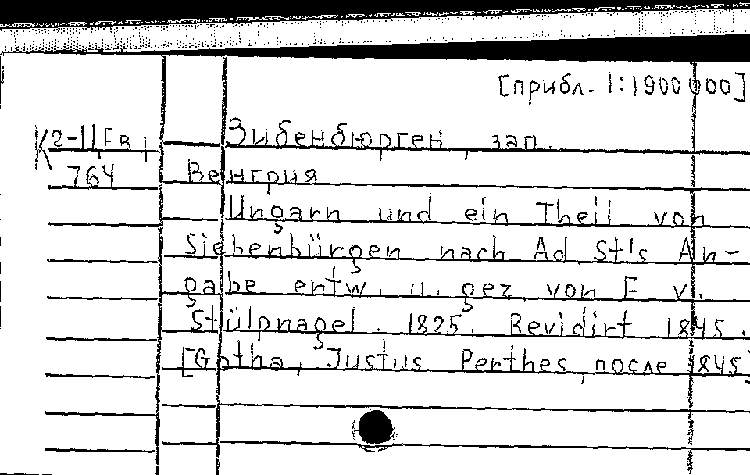 [прибл. 1:1900 000]
К2-11Ев1 Зибенбюрген, зап.
764 Венгрия
Ungarn und ein Theil von
Siebenbürgen nach Ad St's An-
gabe entw. u. gez. von F v.
Stülpnagel. 1825. Revidirt 1845.
[Gotha, Justus Perthes, после 1845]